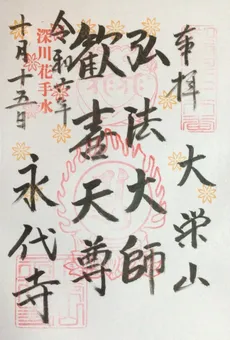 奉拝
大栄山
弘法大師
歓喜天尊
永代寺
令和六年
深川花手水
十月十五日